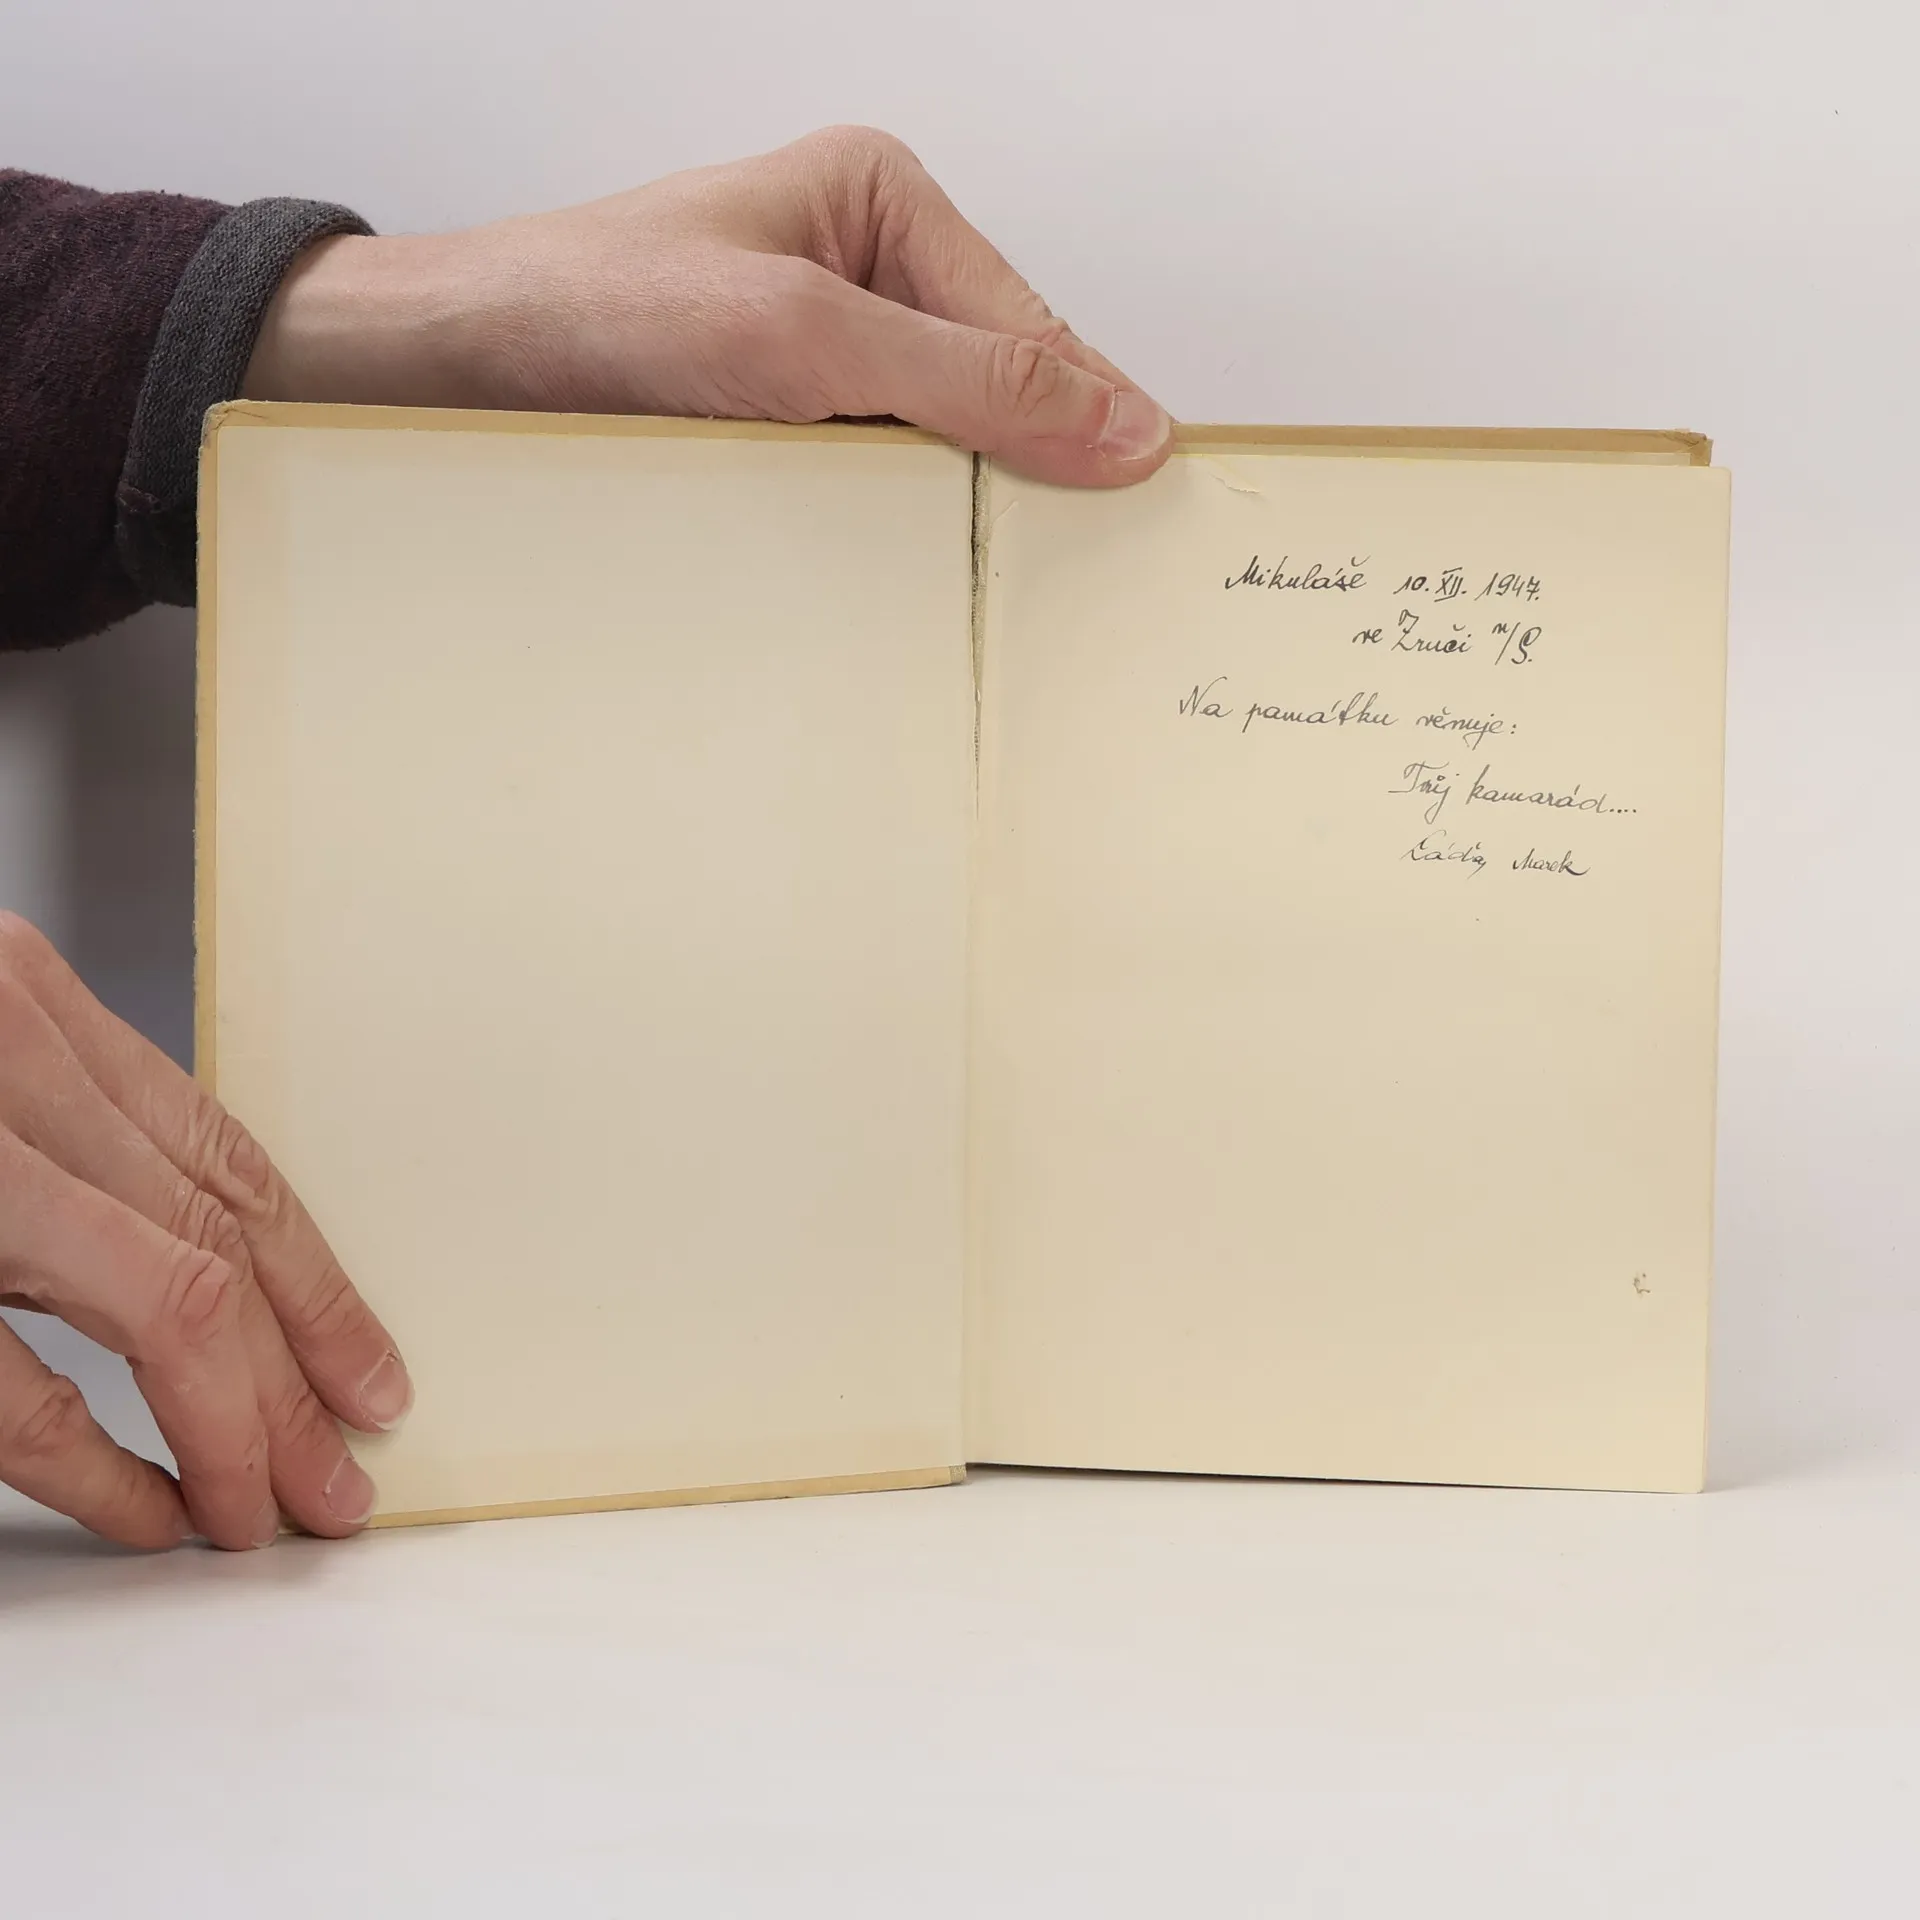 Mikuláše 10. XII. 1947.
ve Zruči n/S.
Na památku věnuje:
Tvůj kamarád....
Láďa Marek